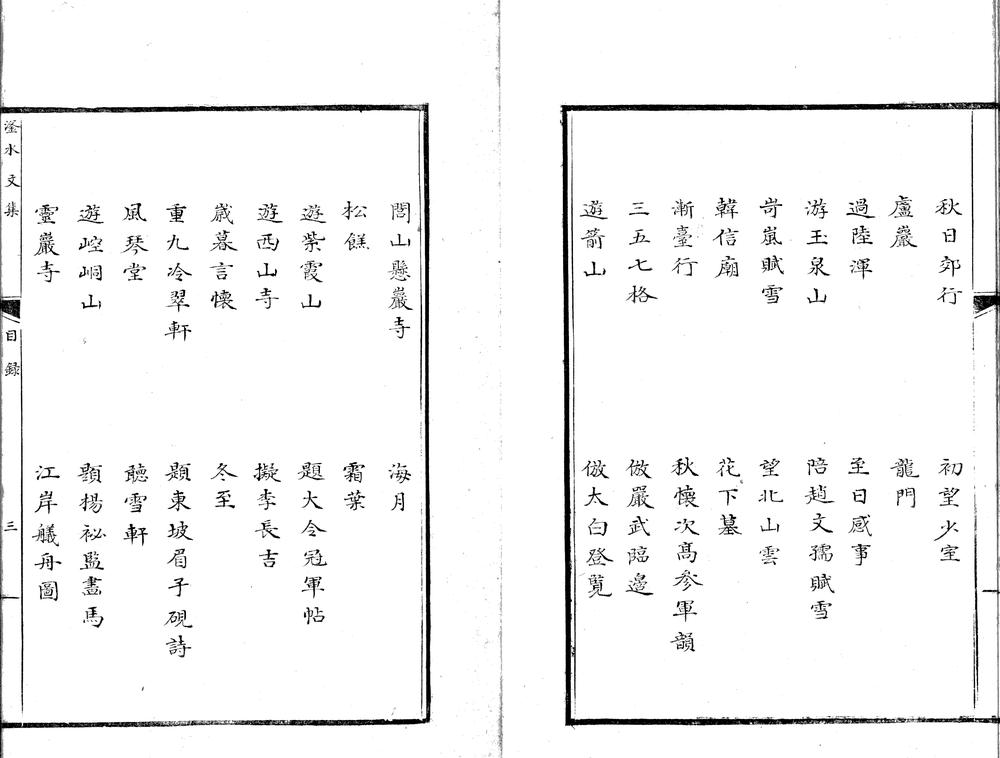 秋日郊行　初望少室
盧巖　龍門
過陸渾　至日感事
游玉泉山　陪趙文孺賦雪
岢嵐賦雪　望北山雲
韓信廟　花下墓
漸臺行　秋懷次高參軍韻
三五七格　倣嚴武臨邊
遊箭山　倣太白登覽
閭山懸巖寺　海月
松餻　霜葉
遊紫霞山　題大令冠軍帖
遊西山寺　擬李長吉
歲暮言懷　冬至
重九冷翠軒　題東坡眉子硯詩
風琴堂　聽雪軒
遊崆峒山　題楊祕監畫馬
靈巖寺　江岸艤舟圖
滏水文集　目錄　三